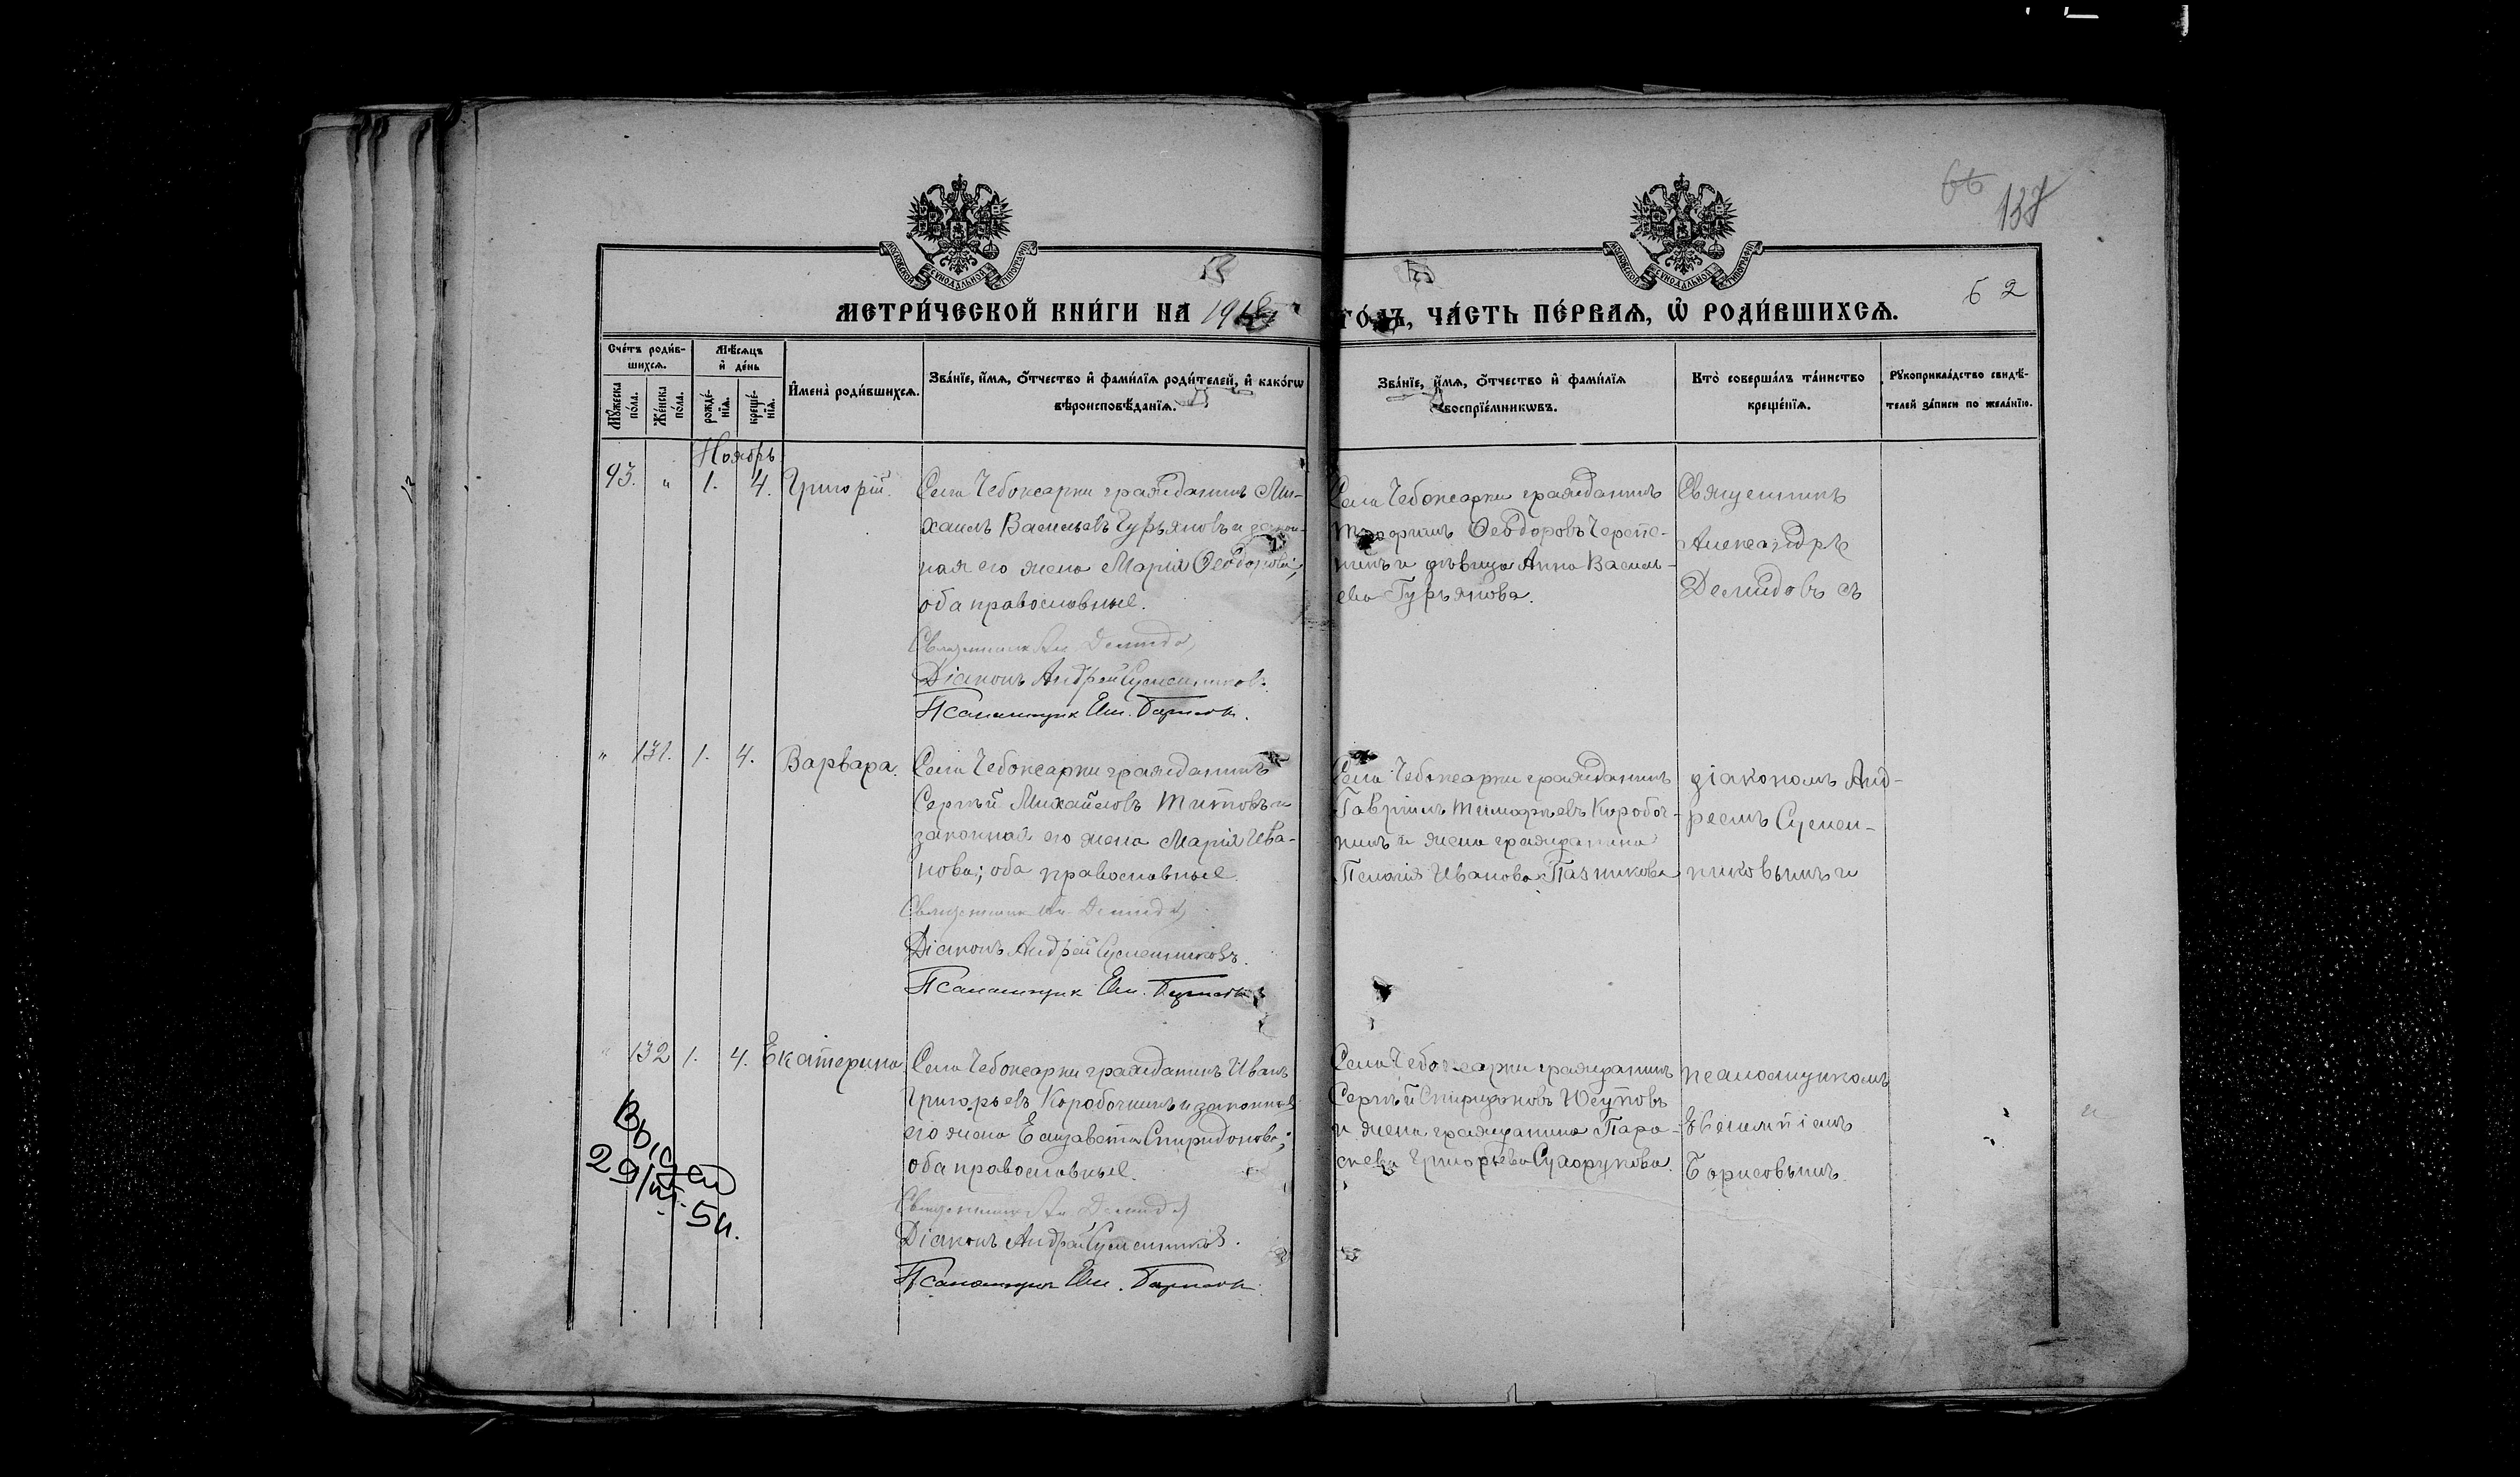 138
62
МЕТРИ́ЧЕСКОЙ КНИ́ГИ НА 1918 ГО́ДЪ, ЧА́СТЬ ПЕ́РВАѦ, Ѡ҆ РОДИ́ВШИХСѦ.
МОСКОВСКОЙ СѴНОДАЛЬНОЙ ТИПОГРАФІИ
МОСКОВСКОЙ СѴНОДАЛЬНОЙ ТИПОГРАФІИ
Сче́тъ роди́в-
шихсѧ.
Мꙋ́жеска по́ла.
Же́нска по́ла.
Мѣ́сѧцъ
и҆ де́нь
рожде́-
нїѧ.
креще́-
нїѧ.
И҆мена̀ роди́вшихсѧ.
Зва́нїе, и҆́мѧ, ѻ҆́тчество и҆ фами́лїѧ роди́телей, и҆ како́гѡ
вѣроисповѣ́данїѧ.
Зва́нїе, и҆́мѧ, ѻ҆́тчество и҆ фами́лїѧ
воспрїе́мникѡвъ.
Кто̀ соверша́лъ та́инство
креще́нїѧ.
Рꙋкоприкла́дство свидѣ́-
телей за́писи по жела́нїю.
Ноябрь
93. " 1. 4. Григорій.
Села Чебоксарки гражданинъ Ми-
хаилъ Васильевъ Гурьяновъ и закон-
ная его жена Марія Ѳеодорова,
оба православные.
Священникъ Ал. Демидов
Діаконъ Андрей Сусленниковъ.
Псаломщик Евл. Борисовъ.
Села Чебоксарки гражданинъ
Трофимъ Ѳеодоровъ Черепе-
нинъ и дѣвица Анна Василь-
ева Гурьянова.
Священникъ
Александръ
Демидовъ съ
" 131. 1. 4. Варвара.
Села Чебоксарки гражданинъ
Сергѣй Михайловъ Титовъ и
законная его жена Марія Ива-
нова; оба православные.
Священникъ Ал. Демидов
Діаконъ Андрей Сусленниковъ.
Псаломщик Евл. Борисовъ
Села Чебоксарки гражданинъ
Гавріилъ Тимофеевъ Короботч-
нинъ и жена гражданина
Пелагія Иванова Пазникова
діакономъ Анд-
реемъ Суслен-
никовымъ и
" 132 1. 4. Екатерина
Села Чебоксарки гражданинъ Иванъ
Григорьевъ Коробочкинъ и законная
его жена Елизавета Спиридонова;
оба православные.
Священникъ Ал. Демидов
Діаконъ Андрей Сусленниковъ.
Псаломщик Евл. Борисовъ.
Села Чебоксарки гражданинъ
Сергѣй Спиридоновъ Юсуповъ
и жена гражданина Пара-
скева Григорьева Сухорукова.
псаломщикомъ
Евлампіемъ
Борисовымъ.
29/VI.54.